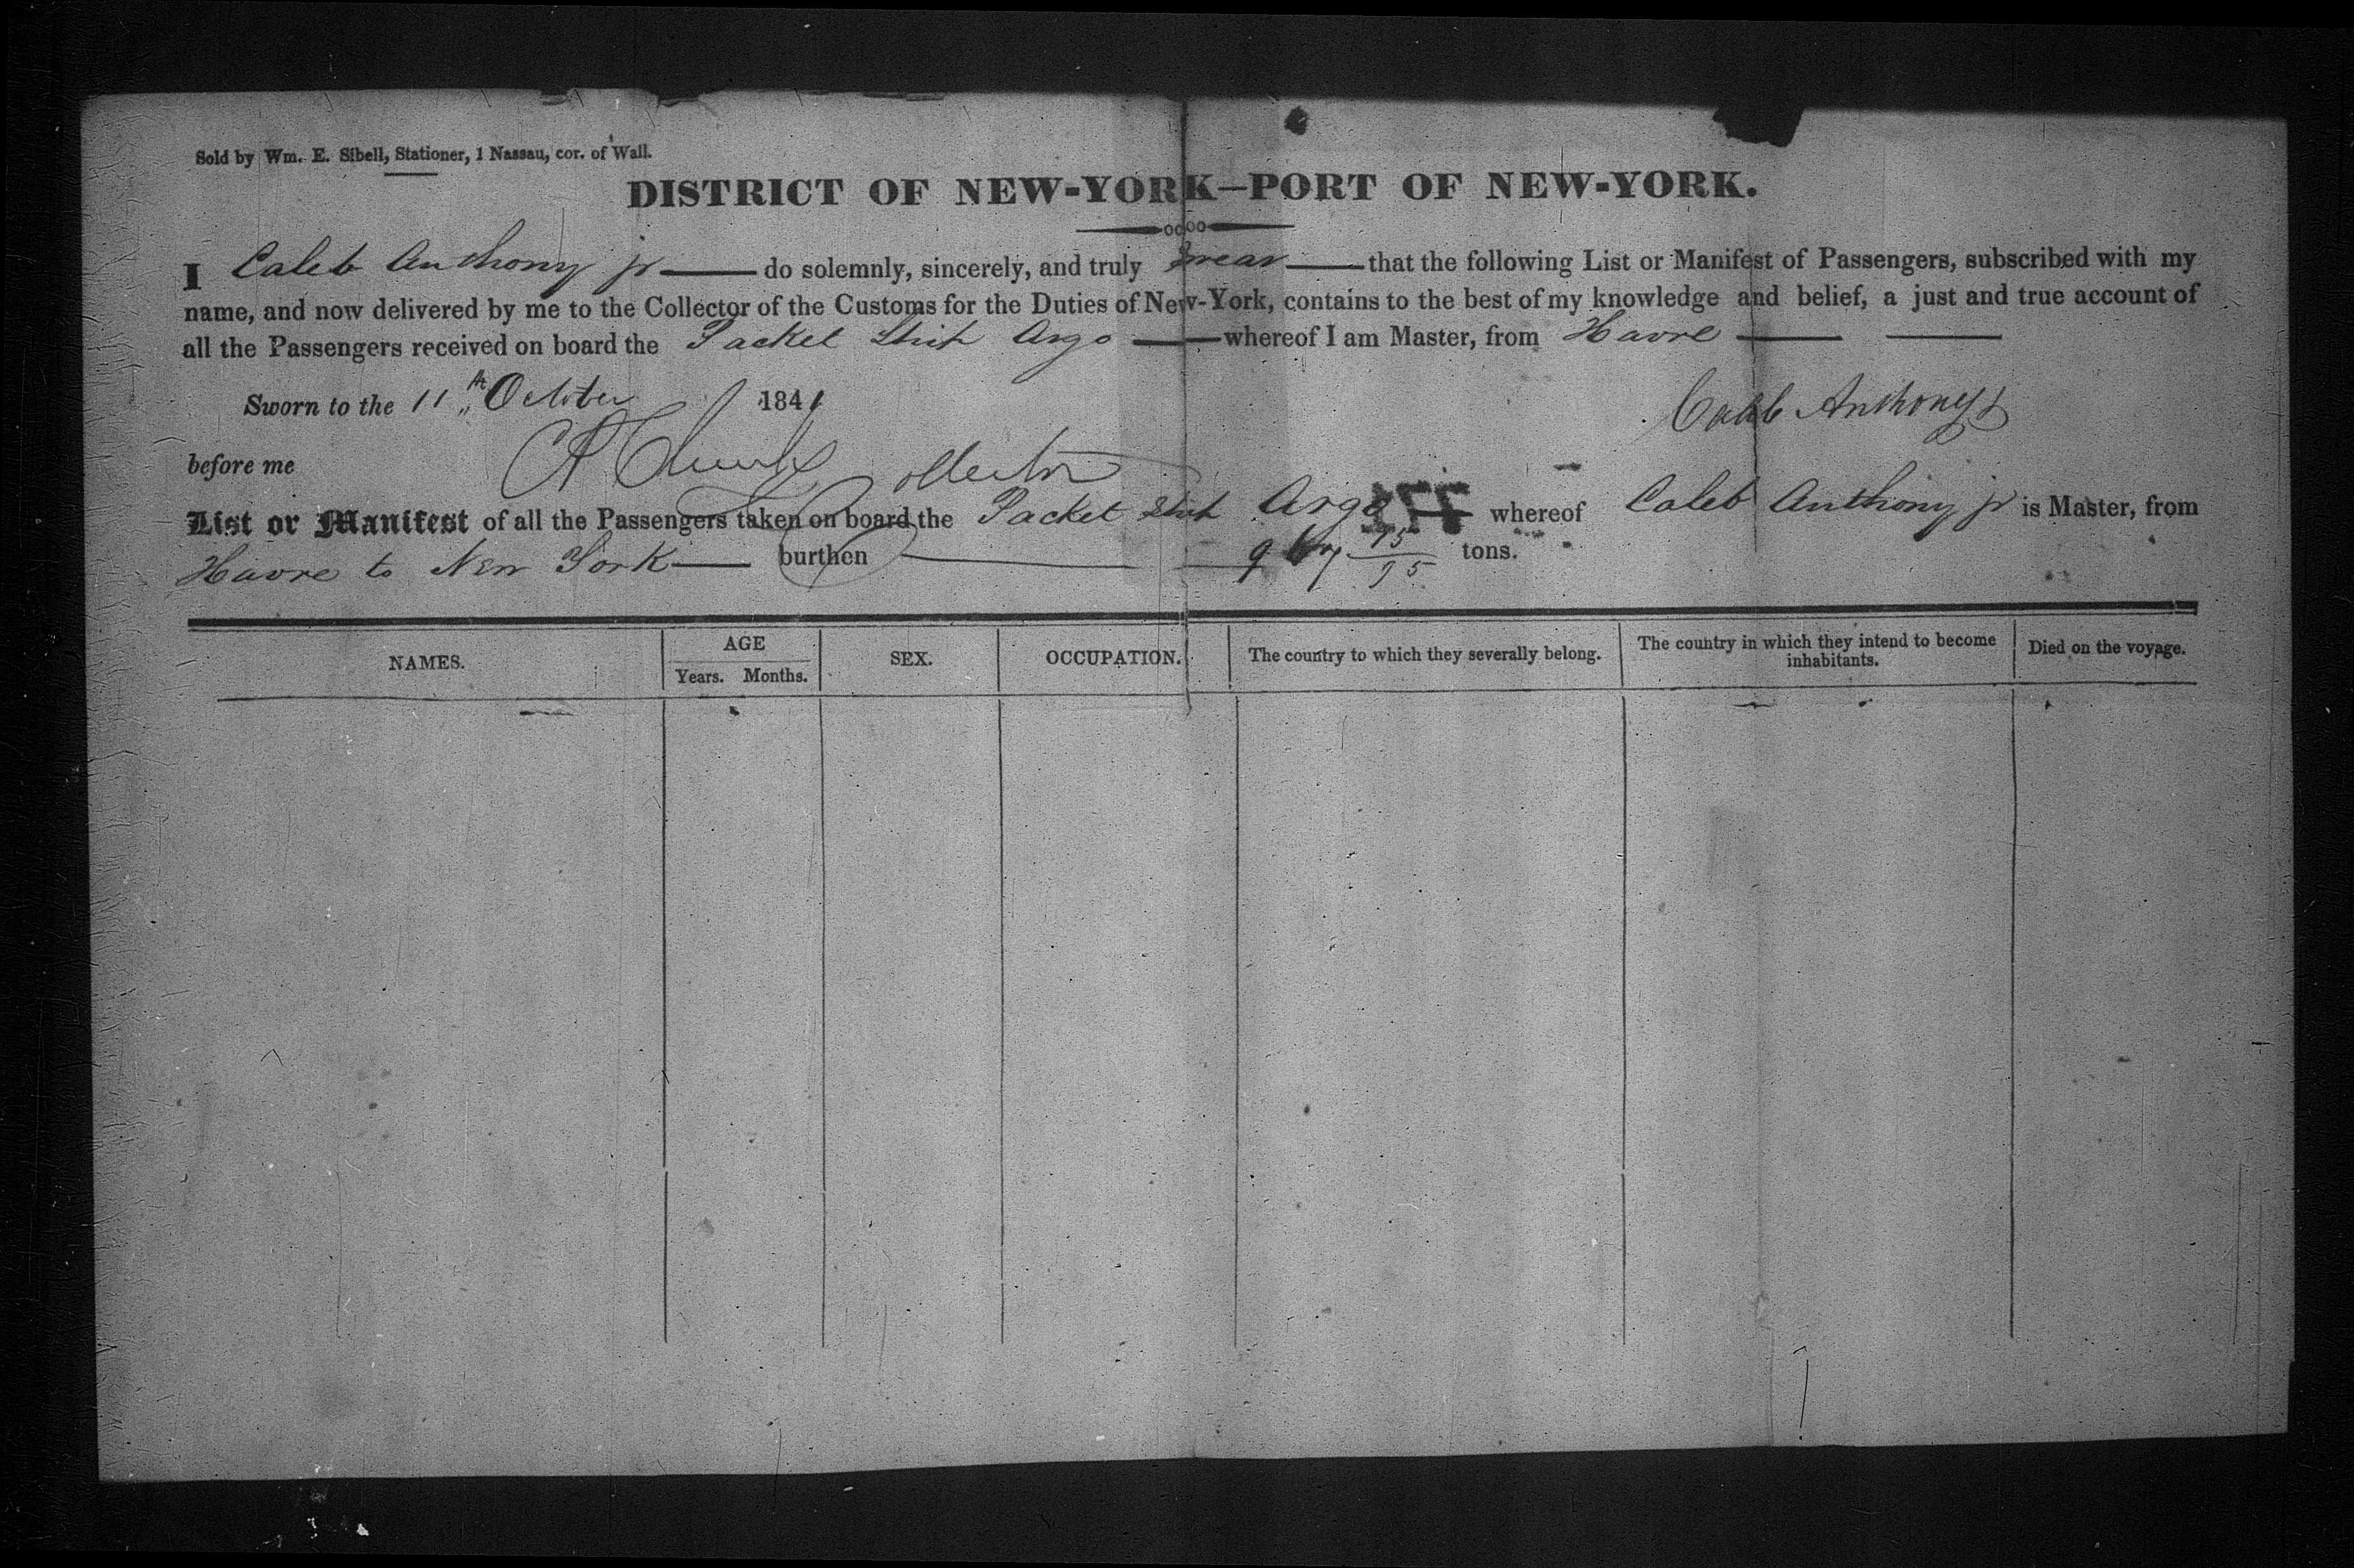 Sold by Wm. E. Sibell, Stationer, 1 Nassau, cor. of Wall.
DISTRICT OF NEW-YORK—PORT OF NEW-YORK.
I Caleb Anthony jr do solemnly, sincerely, and truly Swear that the following List or Manifest of Passengers, subscribed with my
name, and now delivered by me to the Collector of the Customs for the Duties of New-York, contains to the best of my knowledge and belief, a just and true account of
all the Passengers received on board the Packet Ship Argo whereof I am Master, from Havre
Sworn to the 11th October 1841
Caleb Anthony jr
before me Collector
List or Manifest of all the Passengers taken on board the Packet Ship Argo whereof Caleb Anthony jr is Master, from
Havre to New York burthen 967 tons.
NAMES. AGE SEX. OCCUPATION. The country to which they severally belong. The country in which they intend to become inhabitants. Died on the voyage.
Years. Months.